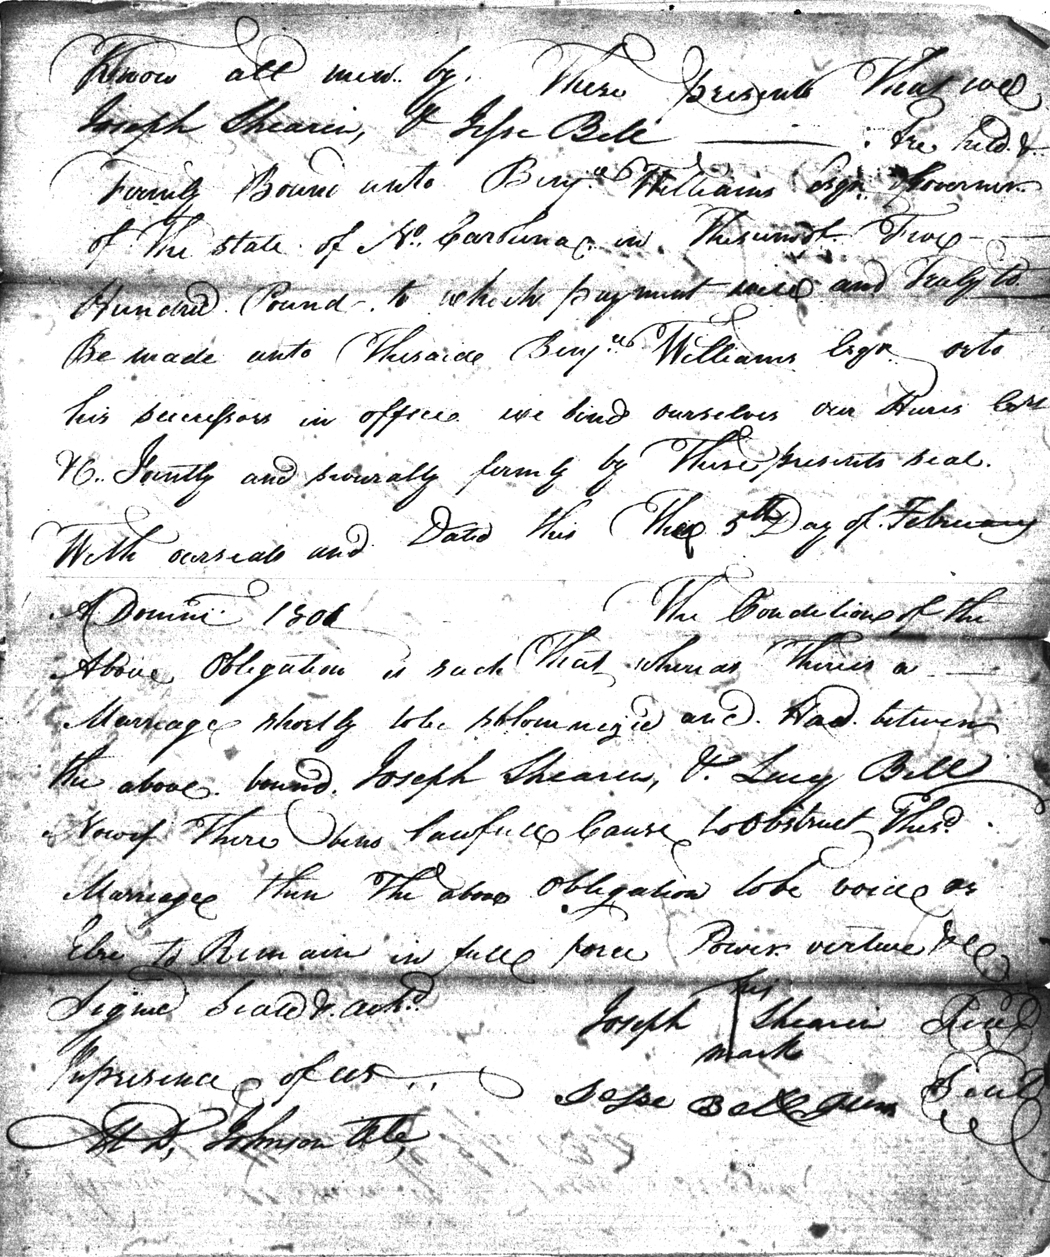 Know all men by These presents That we
Joseph Shearin, & Jesse Bell are held &
firmly Bound unto Benjn Williams Esqr Governor
of The State of No. Carolina in Thesumof Five
Hundred Pound to which payment well and Truly to
Be made unto Thesaid Benjn Williams Esqr orto
his successors in office we bind ourselves our Heirs
&C. Jointly and severally firmly by These presents seal.
With ourseals and Dated this The 5th Day of February
ADomini 1801 The Condition of the
Above Obligation is such That whereas Thereis a
Marriage shortly tobe and Had between
the above bound Joseph Shearin, & Lucy Bell
Nowif There lawfull Cause toObstruct
Marriage then The above Obligation tobe void or
Else to Remain in full force Power virtue &c
Signed Seald & ackd Joseph his Shearin Seal
mark
Inpresence of us Jesse Bell Senr Seal
M D, Johnson